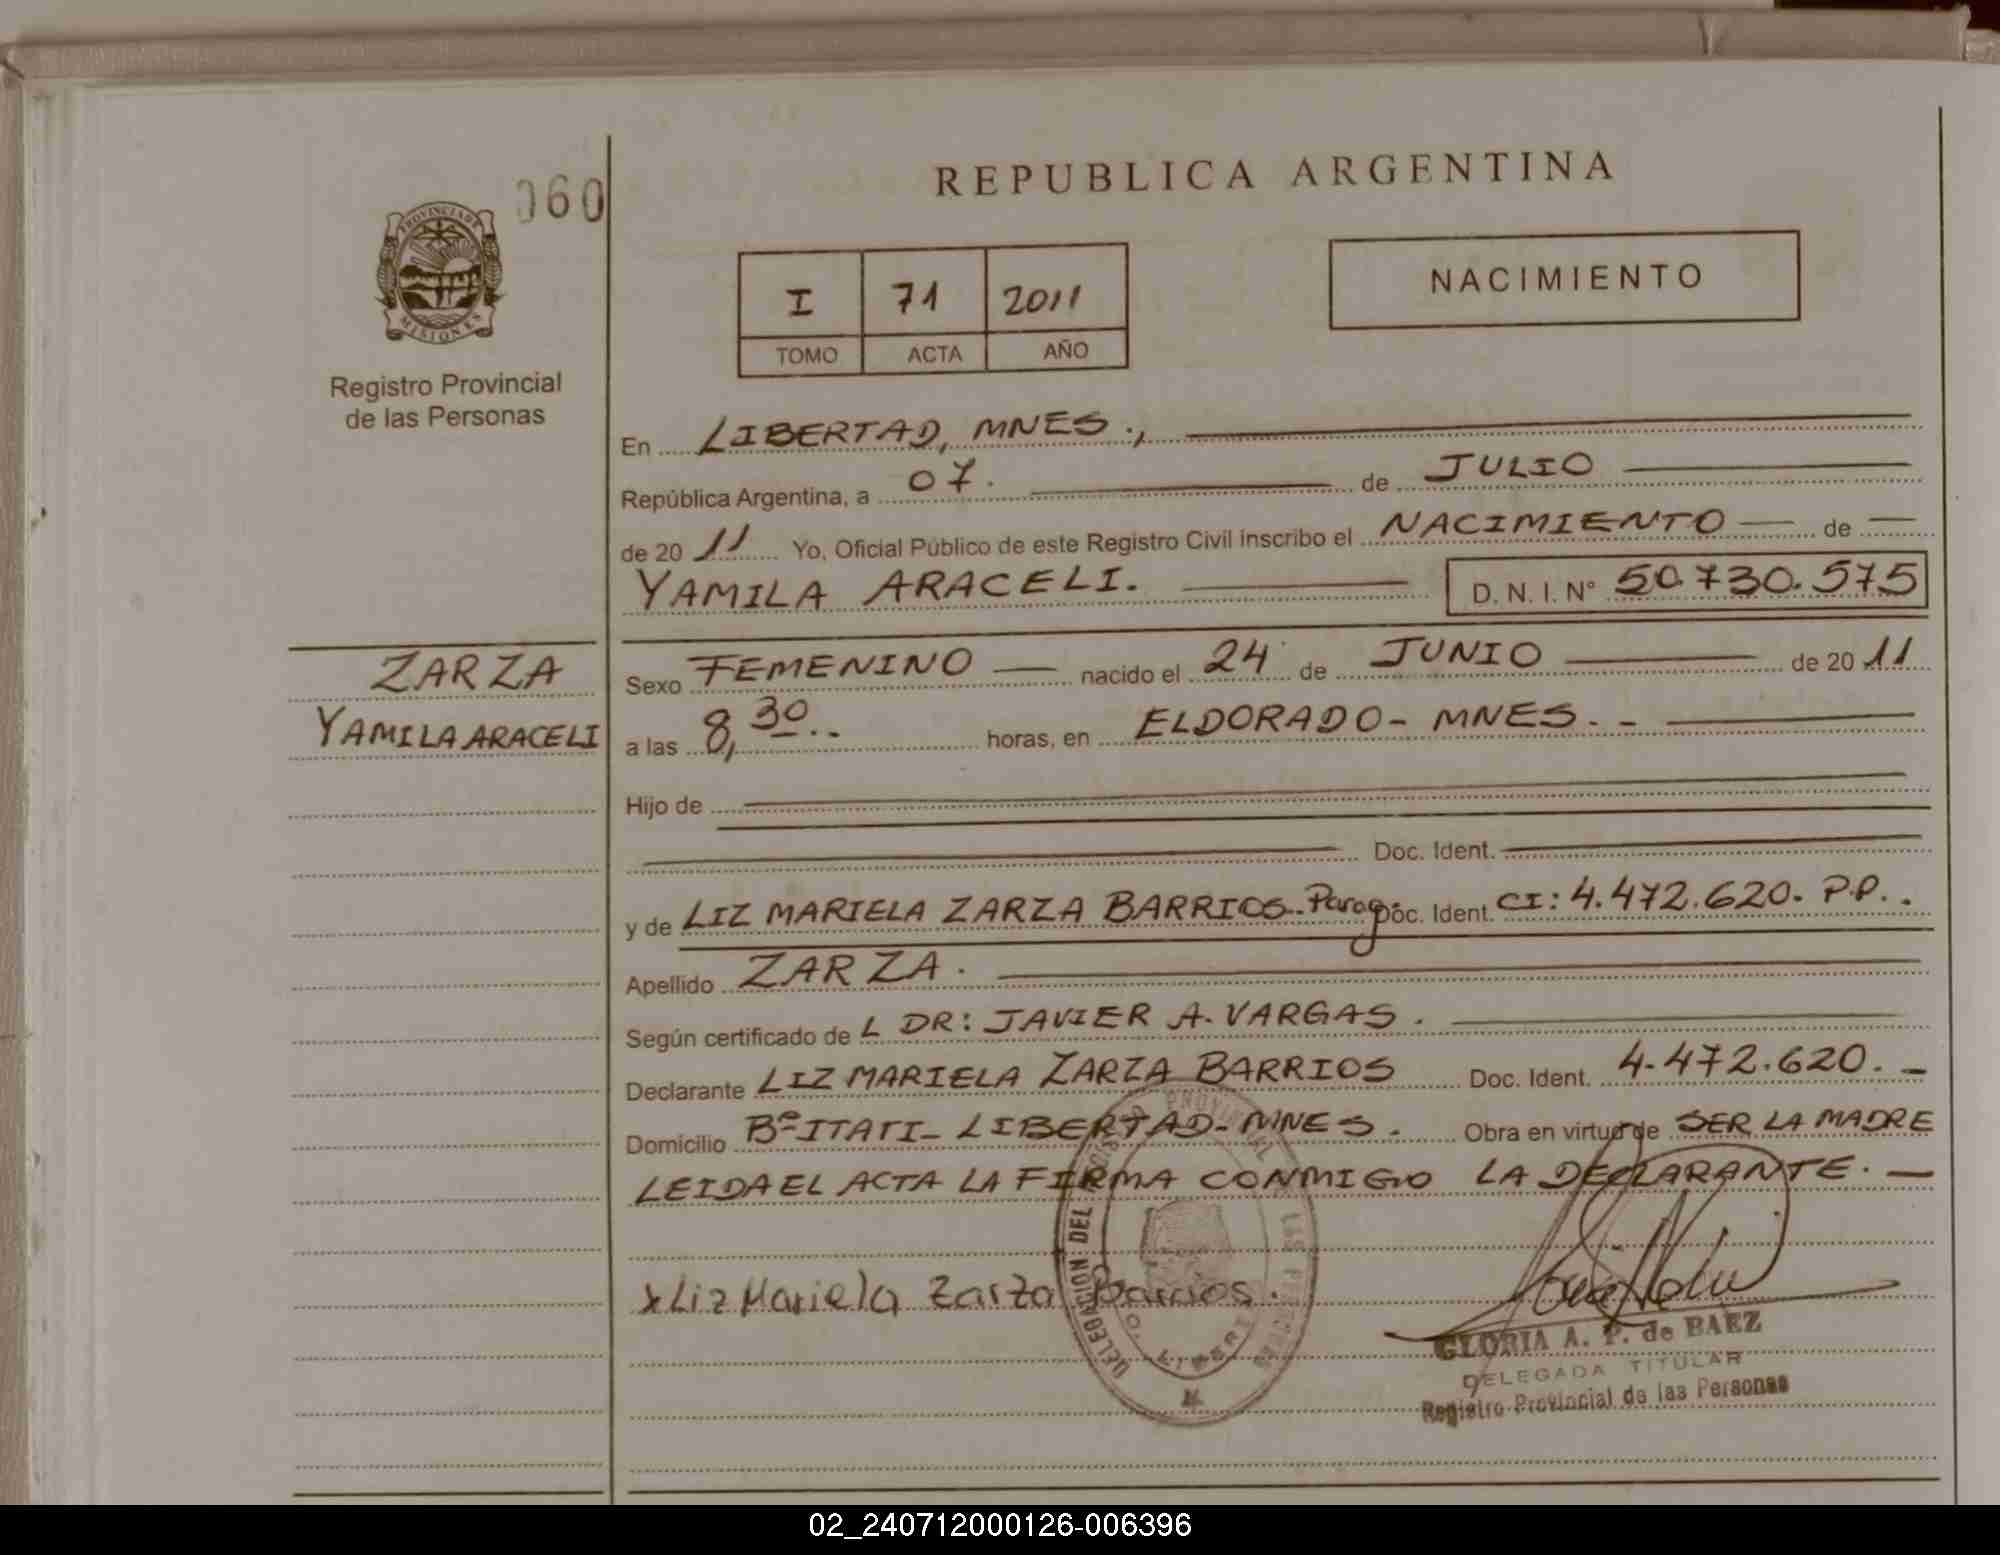 060
PROVINCIA DE
MISIONES
Registro Provincial
de las Personas
REPUBLICA ARGENTINA
I 71 2011
TOMO ACTA AÑO
NACIMIENTO
En LIBERTAD, MNES.,
República Argentina, a 07. de JULIO
de 20 11 Yo, Oficial Público de este Registro Civil inscribo el NACIMIENTO de
YAMILA ARACELI. D. N. I. Nº 50.730.575
ZARZA
YAMILA ARACELI
Sexo FEMENINO nacido el 24 de JUNIO de 20 11
a las 8,30.. horas, en ELDORADO- MNES. -
Hijo de
Doc. Ident.
y de LIZ MARIELA ZARZA BARRIOS. Parag. Doc. Ident. CI: 4.472.620. P.P..
Apellido ZARZA.
Según certificado de L DR: JAVIER A. VARGAS.
Declarante LIZ MARIELA ZARZA BARRIOS Doc. Ident. 4.472.620. -
Domicilio Bº ITATI- LIBERTAD- MNES. Obra en virtud de SER LA MADRE
LEIDA EL ACTA LA FIRMA CONMIGO LA DECLARANTE. -
x Liz Mariela Zarza Barrios.
DELEGACION DEL PROVINCIAL LAS
GLORIA A. P. de BAEZ
DELEGADA TITULAR
Registro Provincial de las Personas
02_240712000126-006396